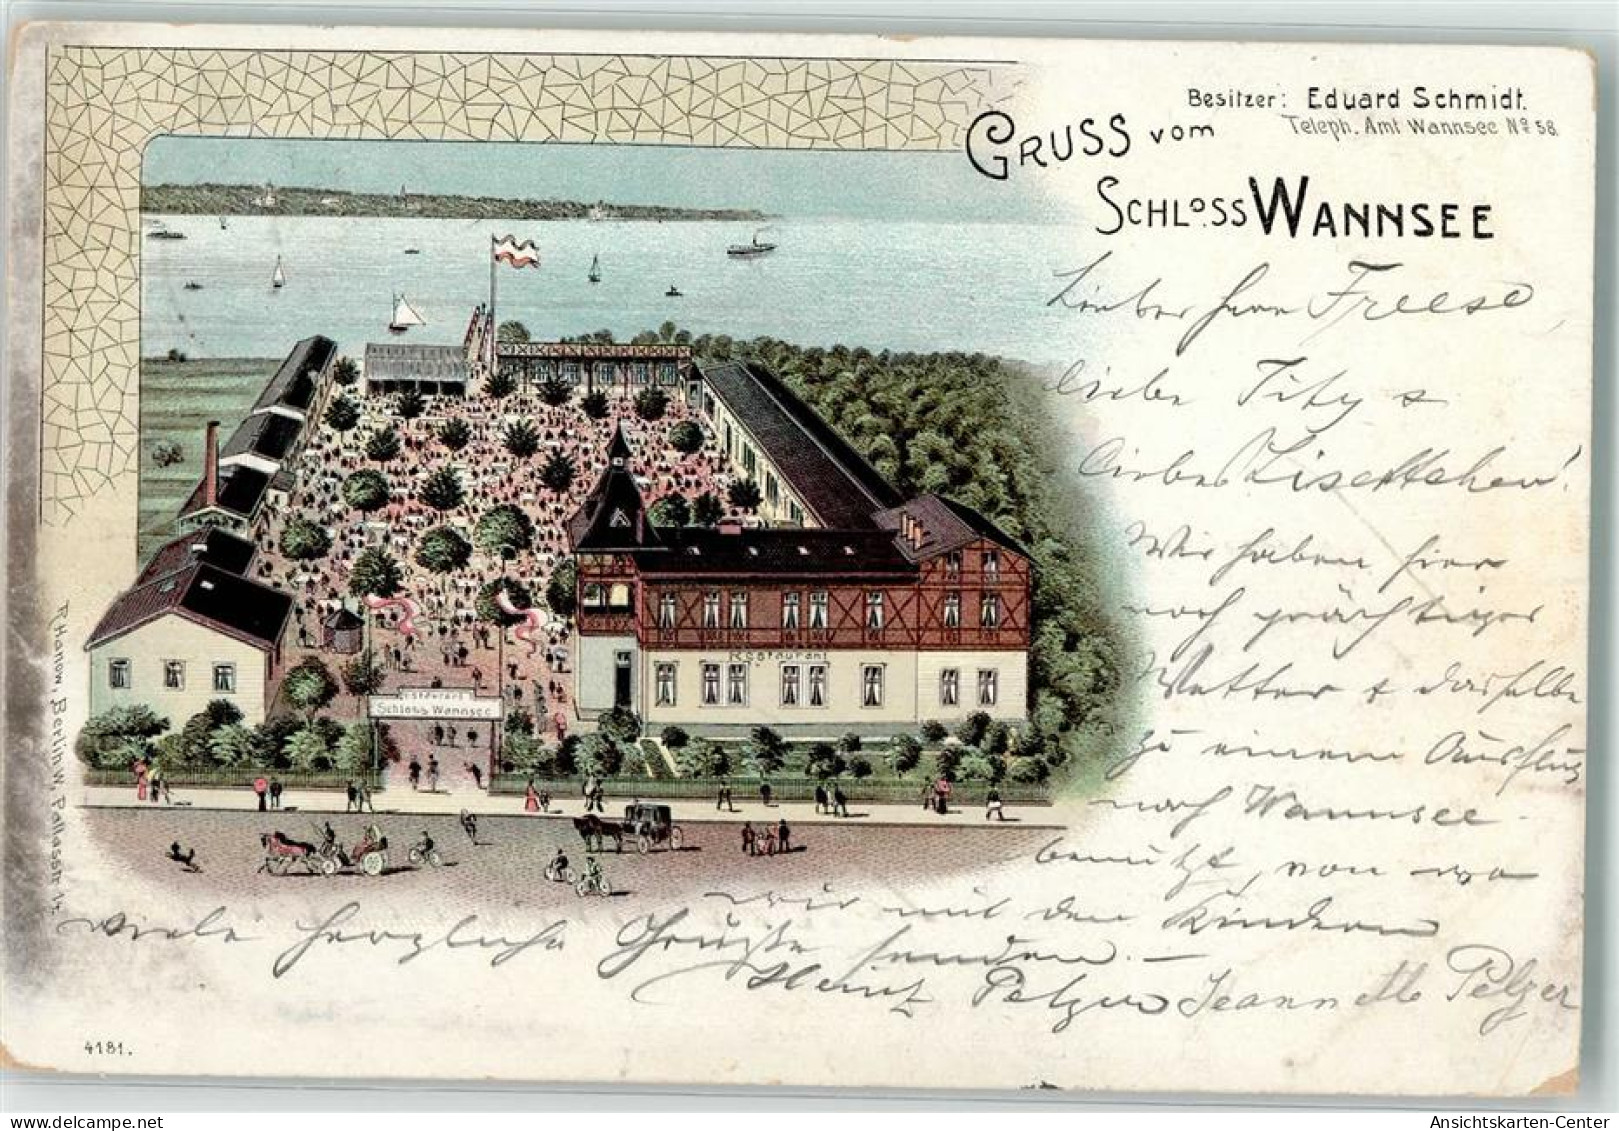 Besitzer: Eduard Schmidt.
Teleph. Amt Wannsee No 58.
GRUSS vom
SCHLOSS WANNSEE
Lieber Herr Freese,
liebe Titys
liebes Lisettchen!
Wir haben hier
noch prächtiges
Wetter & dasselbe
zu einem Ausflug
nach Wannsee
benutzt, von wo
wir mit den Kindern
viele herzliche Grüße senden. —
Heinz Pelzer Jeannette Pelzer
Restaurant
Restaurant
Schloss Wannsee
T. Hanow, Berlin W, Pallasstr 14.
4181.
Ansichtskarten-Center